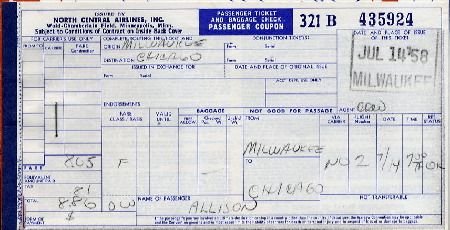 ISSUED BY
NORTH CENTRAL AIRLINES, INC.
Wold-Chamberlain Field, Minneapolis, Minn.
Subject to Conditions of Contract on Inside Back Cover
PASSENGER TICKET
AND BAGGAGE CHECK
PASSENGER COUPON
321 B 435924
FOR CARRIERS USE ONLY
CONJUNCTION TICKET(S)
DATE AND PLACE OF ISSUE
JUL 14 '58
MILWAUKEE
FROM/TO
ORIGIN MILWAUKEE
DESTINATION CHICAGO
ISSUED IN EXCHANGE FOR
DATE AND PLACE OF ORIGINAL ISSUE
ENDORSEMENTS
BAGGAGE
NOT GOOD FOR PASSAGE
AGENT
FARE CLASS/BASIS
VALID UNTIL
ALLOW.
FROM
VIA CARRIER
FLIGHT Number
DATE
TIME
RES STATUS
MILWAUKEE
NO 2 7/14 OK
TO
CHICAGO
FARE 8.05 F
EQUIVALENT AMOUNT PAID
TAX 81
TOTAL 8.86 OW
NAME OF PASSENGER
ALLISON
NOT TRANSFERABLE
FORM OF PAYMENT $